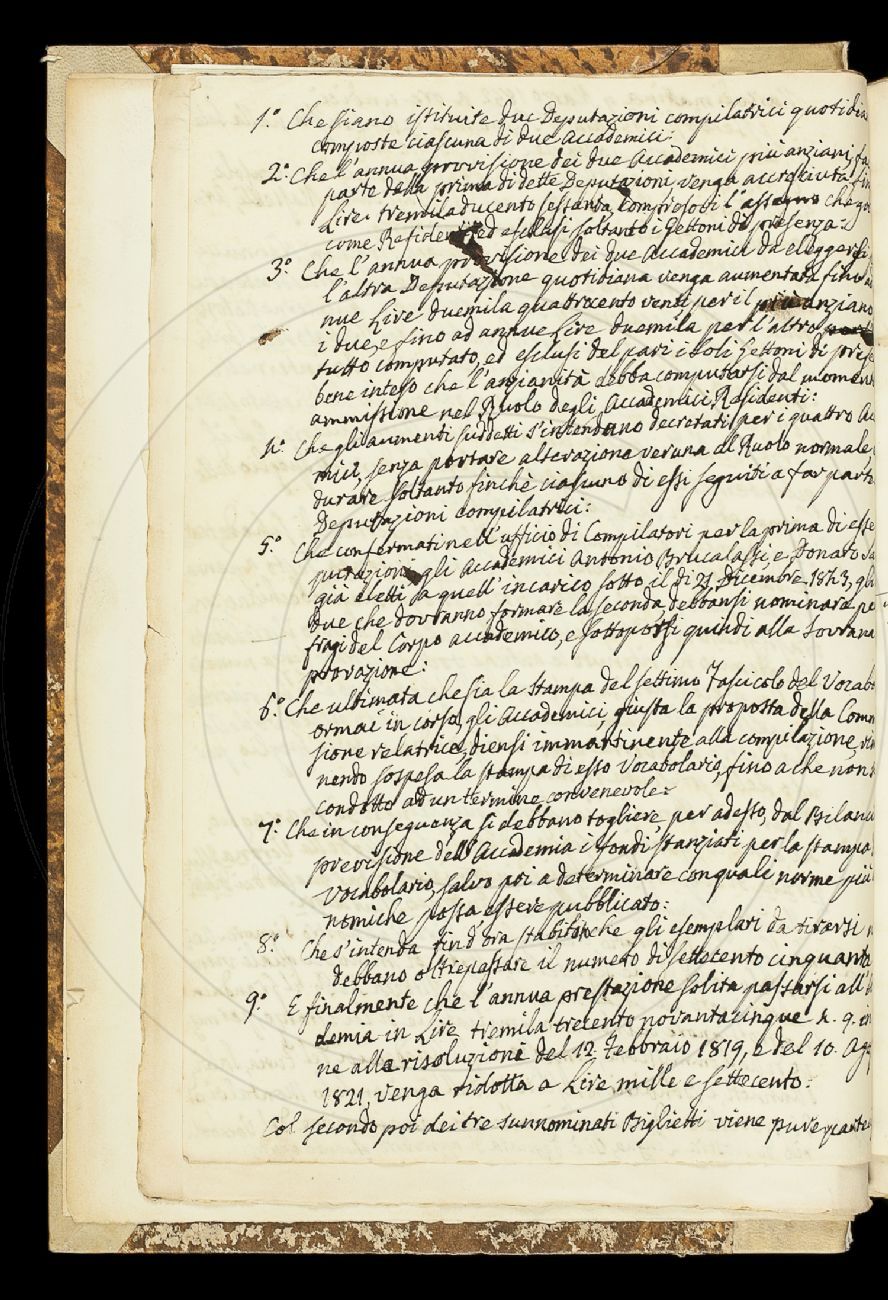 1.° Che siano istituite due Deputazioni compilatrici quotidia
composte ciascuna di due Accademici:
2.° Che l'annua provvisione dei due Accademici più anziani, fa
parte della prima di dette Deputazioni, venga accresciuta fin
Lire tremiladucento sessanta, compresovi l'assegno che go
come Residenti, ed esclusi soltanto i Gettoni di presenza:
3.° Che l'annua provvisione dei due Accademici da eleggersi
l'altra Deputazione quotidiana venga aumentata fino ad
nue Lire duemila quattrocento venti per il più anziano
i due, e fino ad annue Lire duemila per l'altro
tutto computato, ed esclusi del pari i soli Gettoni di prese
bene inteso che l'anzianità debba computarsi dal moment
ammissione nel Ruolo degli Accademici Residenti:
4.° Che gli aumenti suddetti s'intendano decretati per i quattro Ac
mici, senza portare alterazione veruna al Ruolo normale,
durare soltanto finchè ciascuno di essi seguiti a far parte
Deputazioni compilatrici:
5.° Che confermati nell'ufficio di Compilatori per la prima di esse
putazioni gli Accademici Antonio Brucalassi, e Donato Sa
già eletti a quell'incarico sotto il dì 21 Dicembre 1843, gli
due che dovranno formare la seconda debbansi nominare pe
fragi del Corpo accademico, e sottoporsi quindi alla Sovrana
provazione:
6.° Che ultimata che sia la stampa del settimo Fascicolo del Vocab
ormai in corso, gli Accademici, giusta la proposta della Comm
sione relatrice, diensi immantinente alla compilazione, rim
nendo sospesa la stampa di esso Vocabolario, fino a che non s
condotto ad un termine convenevole:
7.° Che in conseguenza si debbano togliere, per adesso, dal Bilanc
previsione dell'Accademia i fondi stanziati per la stampa
Vocabolario, salvo poi a determinare con quali norme più
nomiche possa essere pubblicato:
8.° Che s'intenda fin d'ora stabilito che gli esemplari da tirarsi n
debbano oltrepassare il numero di settecento cinquanta
9.° E finalmente che l'annua prestazione solita passarsi all'A
demia in Lire tremila trecento novantacinque 4. 9. in
ne alle risoluzioni del 12 Febbraio 1819, e del 10. Ago
1821, venga ridotta a Lire mille e settecento:
Col secondo poi dei tre sunnominati Biglietti viene pure parte